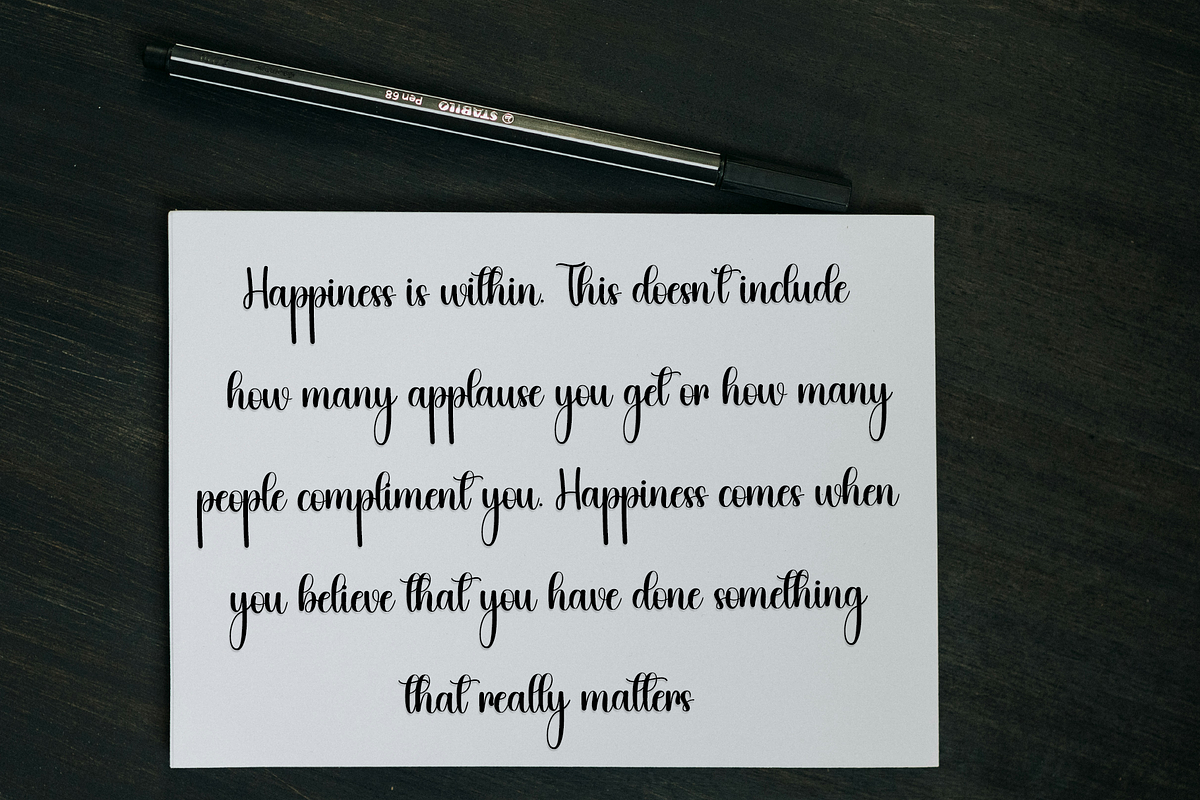 STABILO Pen 68
Happiness is within. This doesn't include
how many applause you get or how many
people compliment you. Happiness comes when
you believe that you have done something
that really matters